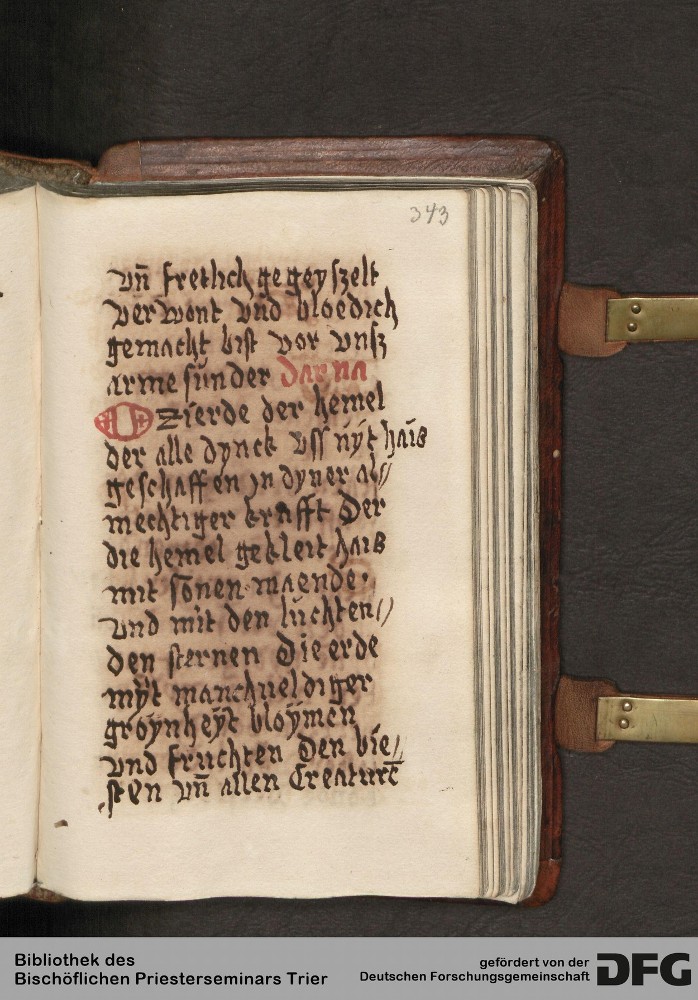 343
vn̄ fretlich gegeyszelt
verwont vnd bloedich
gemacht bist vor vnsz
arme sunder dar na
O zierde der hemel
der alle dynck vss nyt hais
geschaffen jn dyner al//
mechtiger krafft Der
die hemel gekleit hais
mit sonen maende·
vnd mit den luchten//
den sternen Die erde
myt manchueldiger
groynheyt bloymen
vnd fruchten Den bie//
sten vn̄ allen Creaturē
Bibliothek des
Bischöflichen Priesterseminars Trier
gefördert von der
Deutschen Forschungsgemeinschaft
DFG